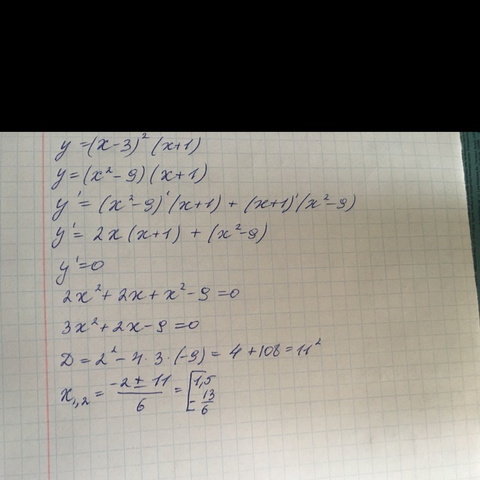 y = (x-3)² (x+1)
y = (x²-9) (x+1)
y' = (x²-9)' (x+1) + (x+1)' (x²-9)
y' = 2x (x+1) + (x²-9)
y' = 0
2x² + 2x + x² - 9 = 0
3x² + 2x - 9 = 0
D = 2² - 4 · 3 · (-9) = 4 + 108 = 11²
x₁,₂ = (-2 ± 11)/6 = [1,5; -13/6